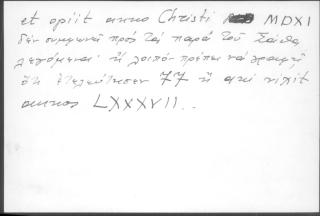 et opiit anno Christi MDXI
δέν συμφωνεῖ πρός τά παρά τοῦ Σάθα
λεγόμενα· ἤ λοιπόν πρέπει νά γραφῇ
ὅτι ἐτελεύτησεν 77 ἤ ἀντί vixit
annos LXXXVII..